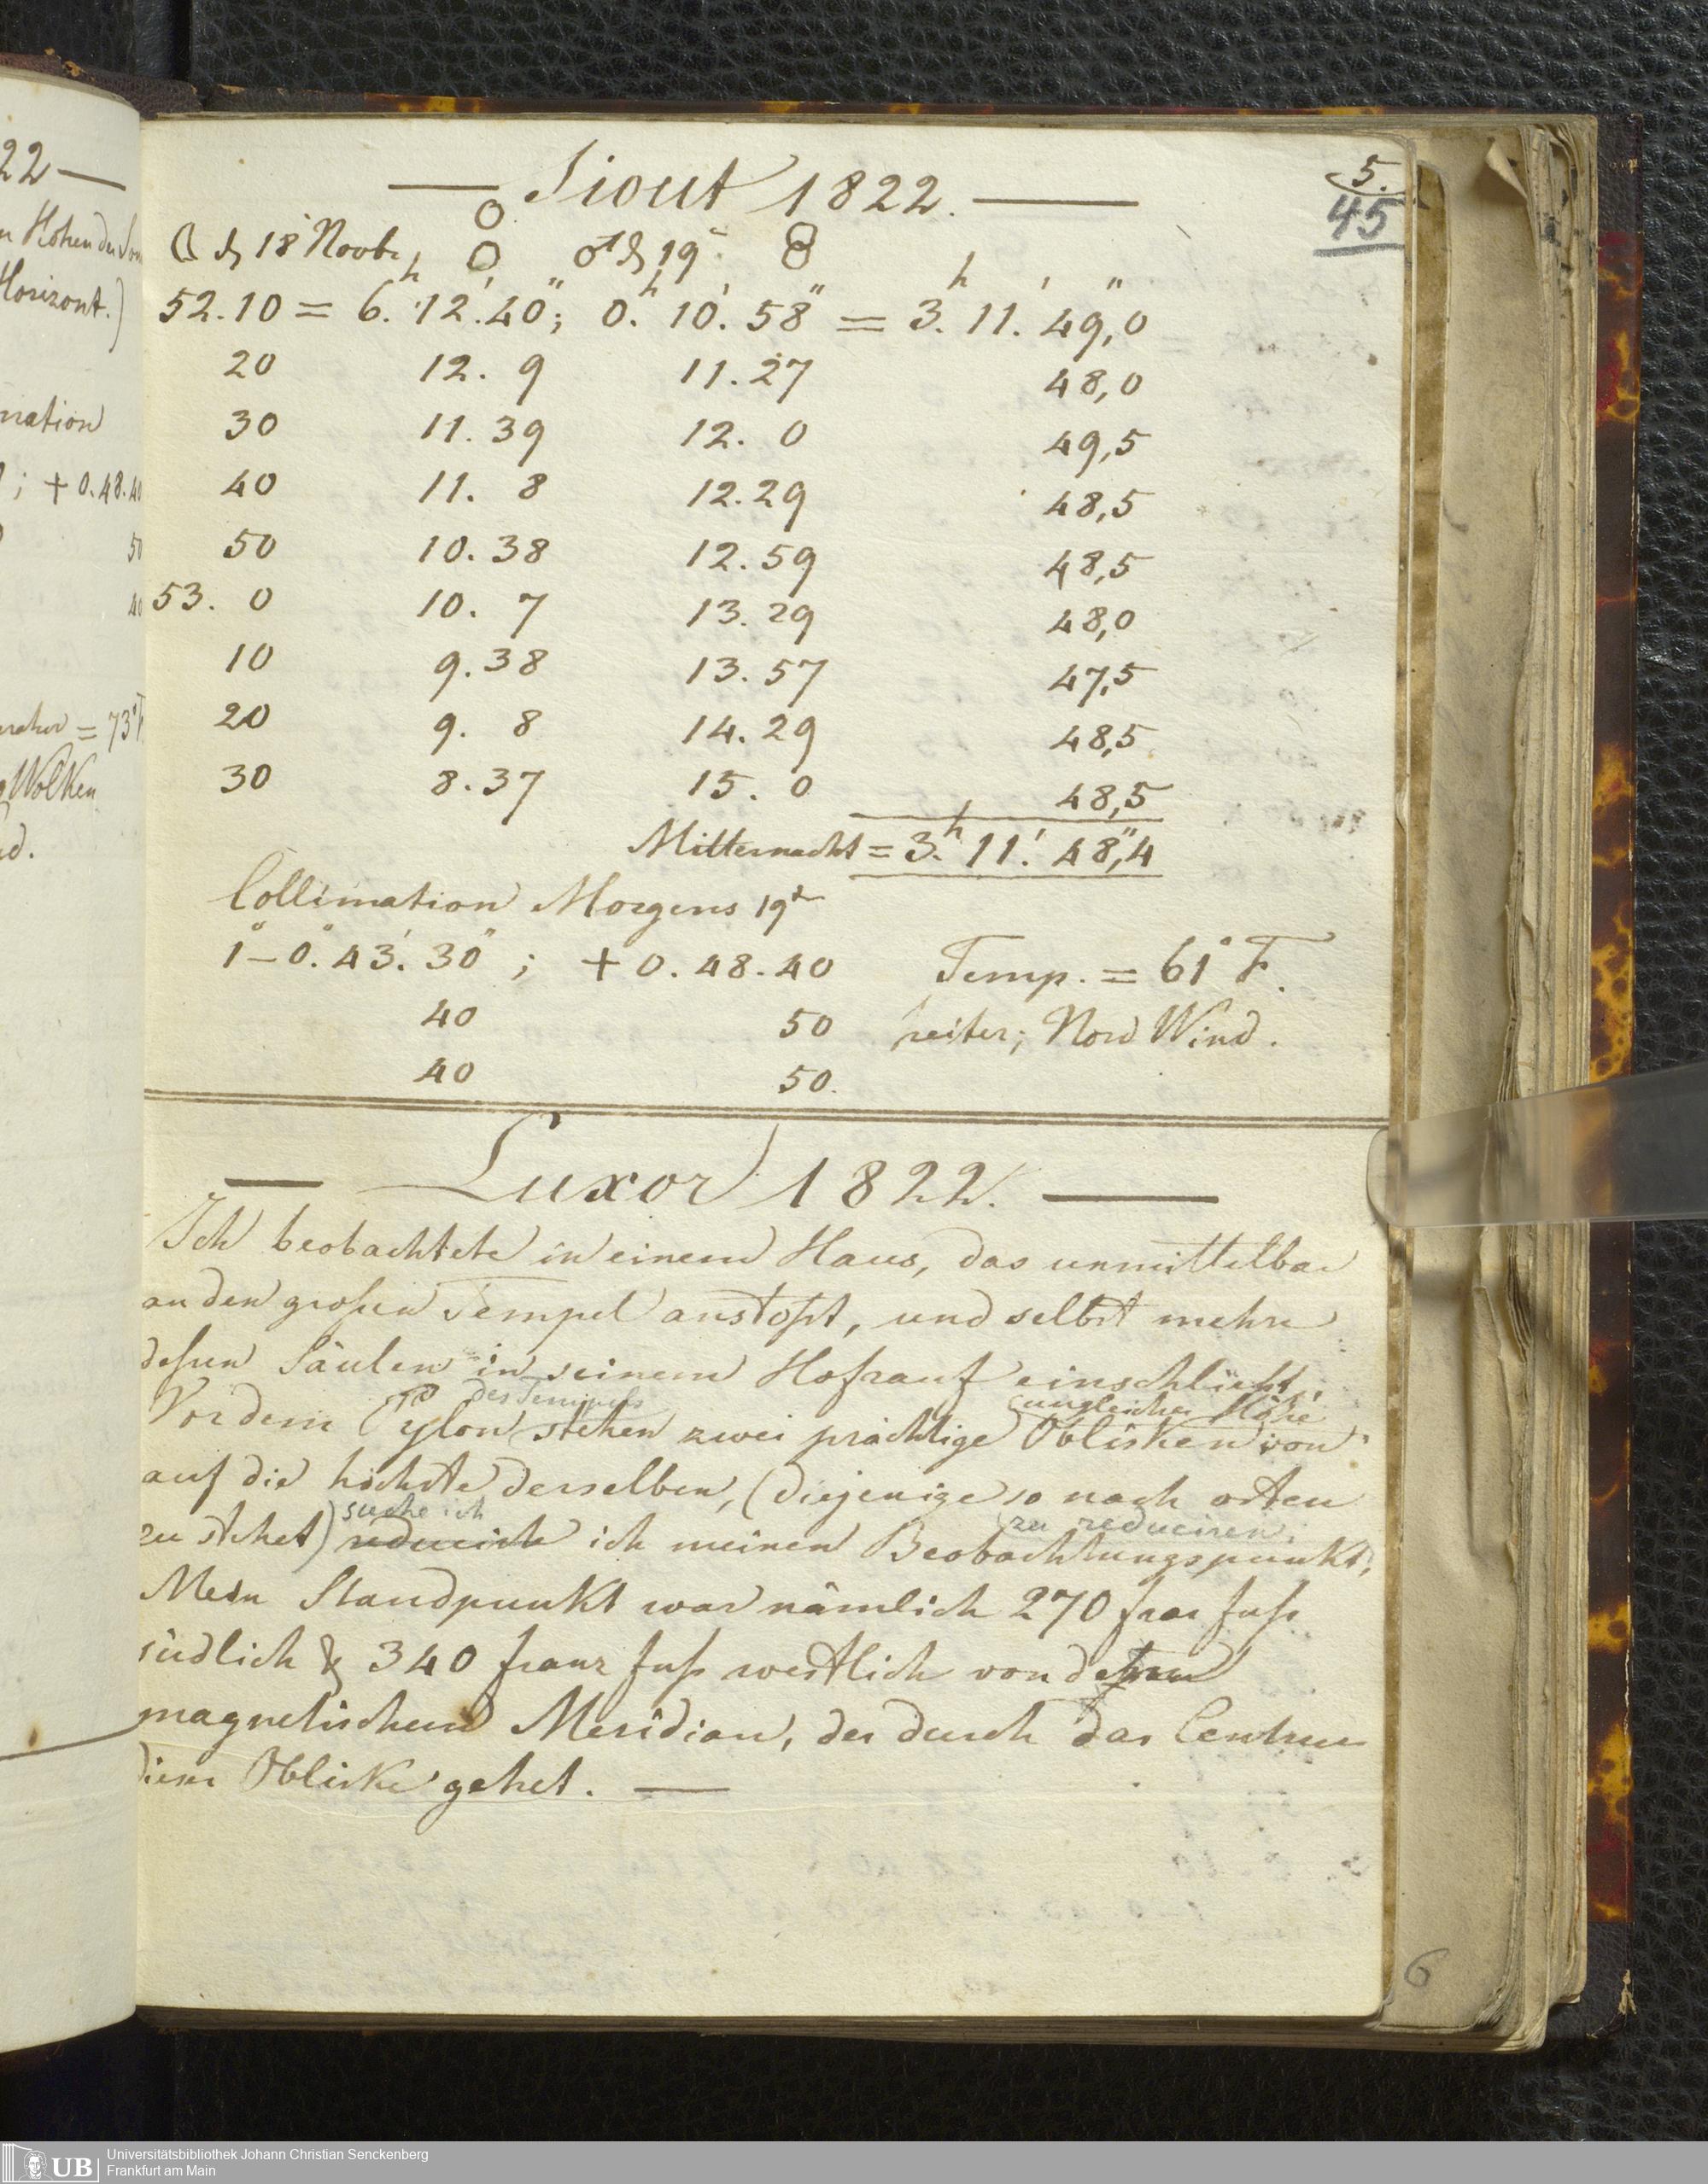 22 —
Horizont.)
; + 0.48.40
= 73°
Wolken
5.
45
— Siout 1822. —
☾ d 18 Novb. ♂ d 19
52.10 = 6.h 12.' 40"; 0.h 10.' 58" = 3.h 11.' 49,"0
20 12. 9 11.27 48,0
30 11.39 12. 0 49,5
40 11. 8 12.29 48,5
50 10.38 12.59 48,5
53. 0 10. 7 13.29 48,0
10 9.38 13.57 47,5
20 9. 8 14.29 48,5
30 8.37 15. 0 48,5
Mitternacht = 3.h 11.' 48,"4
Collimation Morgens 19t
1° – 0.° 43.' 30" ; + 0.48.40 Temp. = 61° F.
40 50 heiter; Nord Wind.
40 50.
— Luxor 1822. —
Ich beobachtete in einem Haus, das unmittelbar
an den großen Tempel anstoßt, und selbst mehre
deßen Säulen in seinem Hofrauf einschließt,
des Tempels ungleicher Höhe
Vor dem Pylon stehen zwei prächtige Oblisken von
auf die höchste derselben, (diejenige so nach osten
suche ich zu reduciren
zu stehet) reducirte ich meinen Beobachtungspunkt,
Mein Standpunkt war nämlich 270 frar fuß
südlich & 340 franz fuß westlich von deßen
magnetischen Meridian, der durch das Centrum
dieser Obliske gehet. —
6
UB Universitätsbibliothek Johann Christian Senckenberg
Frankfurt am Main